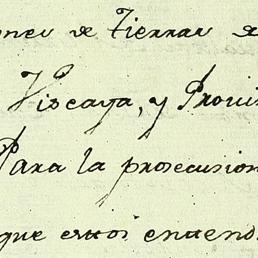 de Tierras de
Viscaya, y Provin
Para la prosecusion
que estoi entend